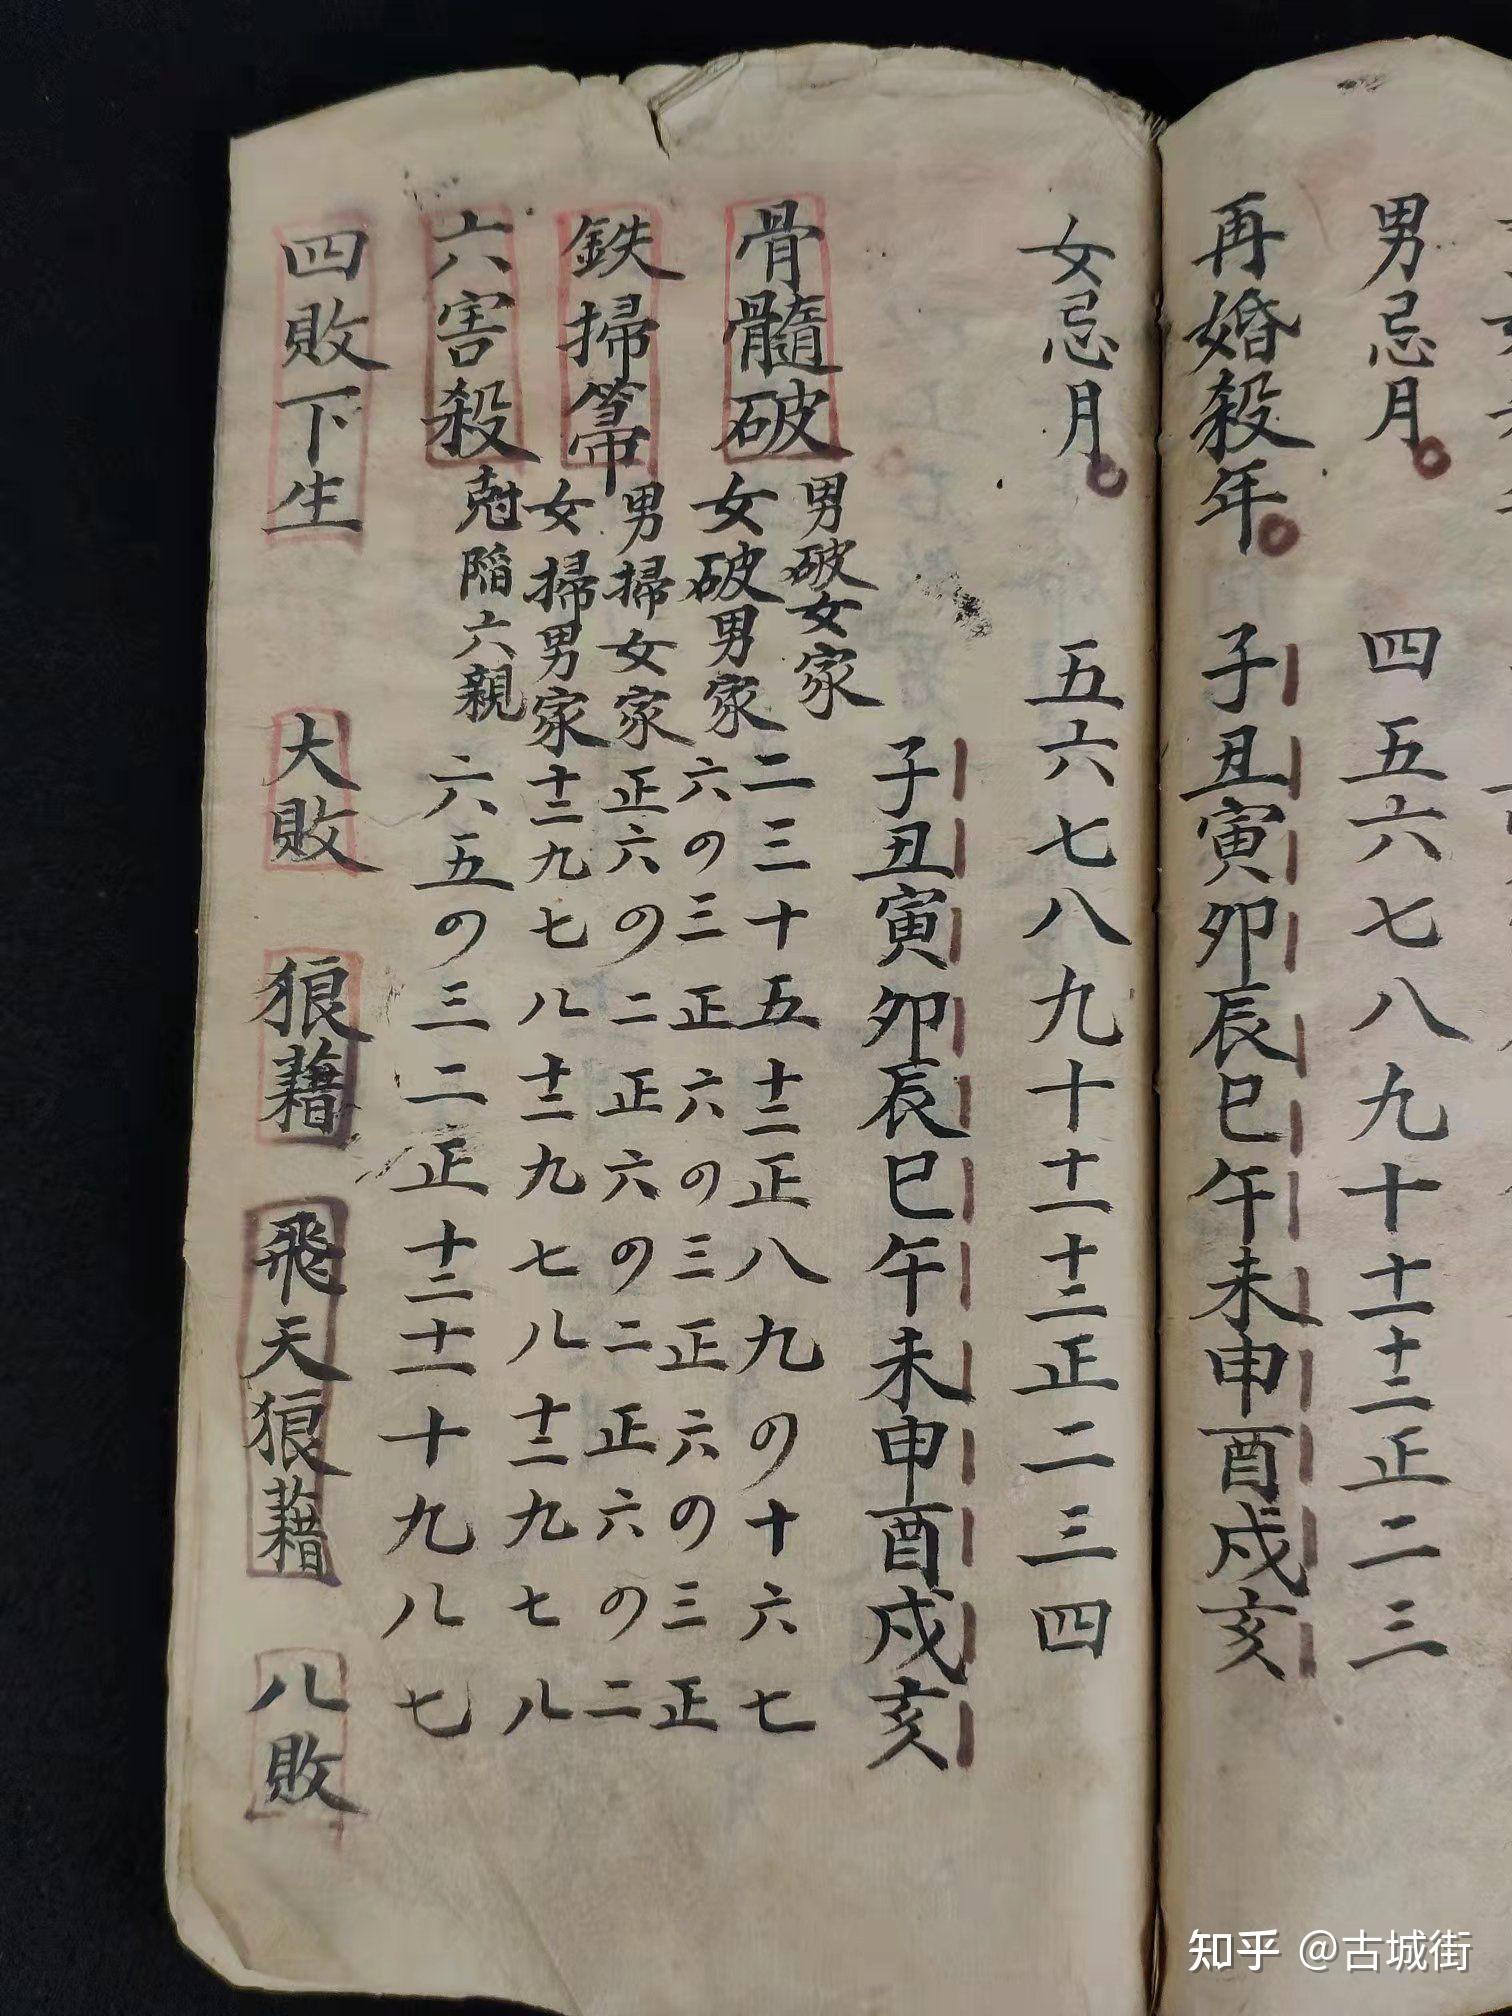 男忌月 四五六七八九十十一十二正二三
再婚殺年 子丑寅卯辰巳午未申酉戌亥
女忌月 五六七八九十十一十二正二三四
子丑寅卯辰巳午未申酉戌亥
骨髓破
男破女家 二三十五十二正八九の十六七
女破男家 六の三正六の三正六の三正
鉄掃箒
男掃女家 正六の二正六の二正六の二
女掃男家 十二九七八十二九七八十二九七八
六害殺 尅陷六親 六五の三二正十二十一十九八七
四敗下生 大敗 狼藉 飛天狼藉 八敗
知乎 @古城街